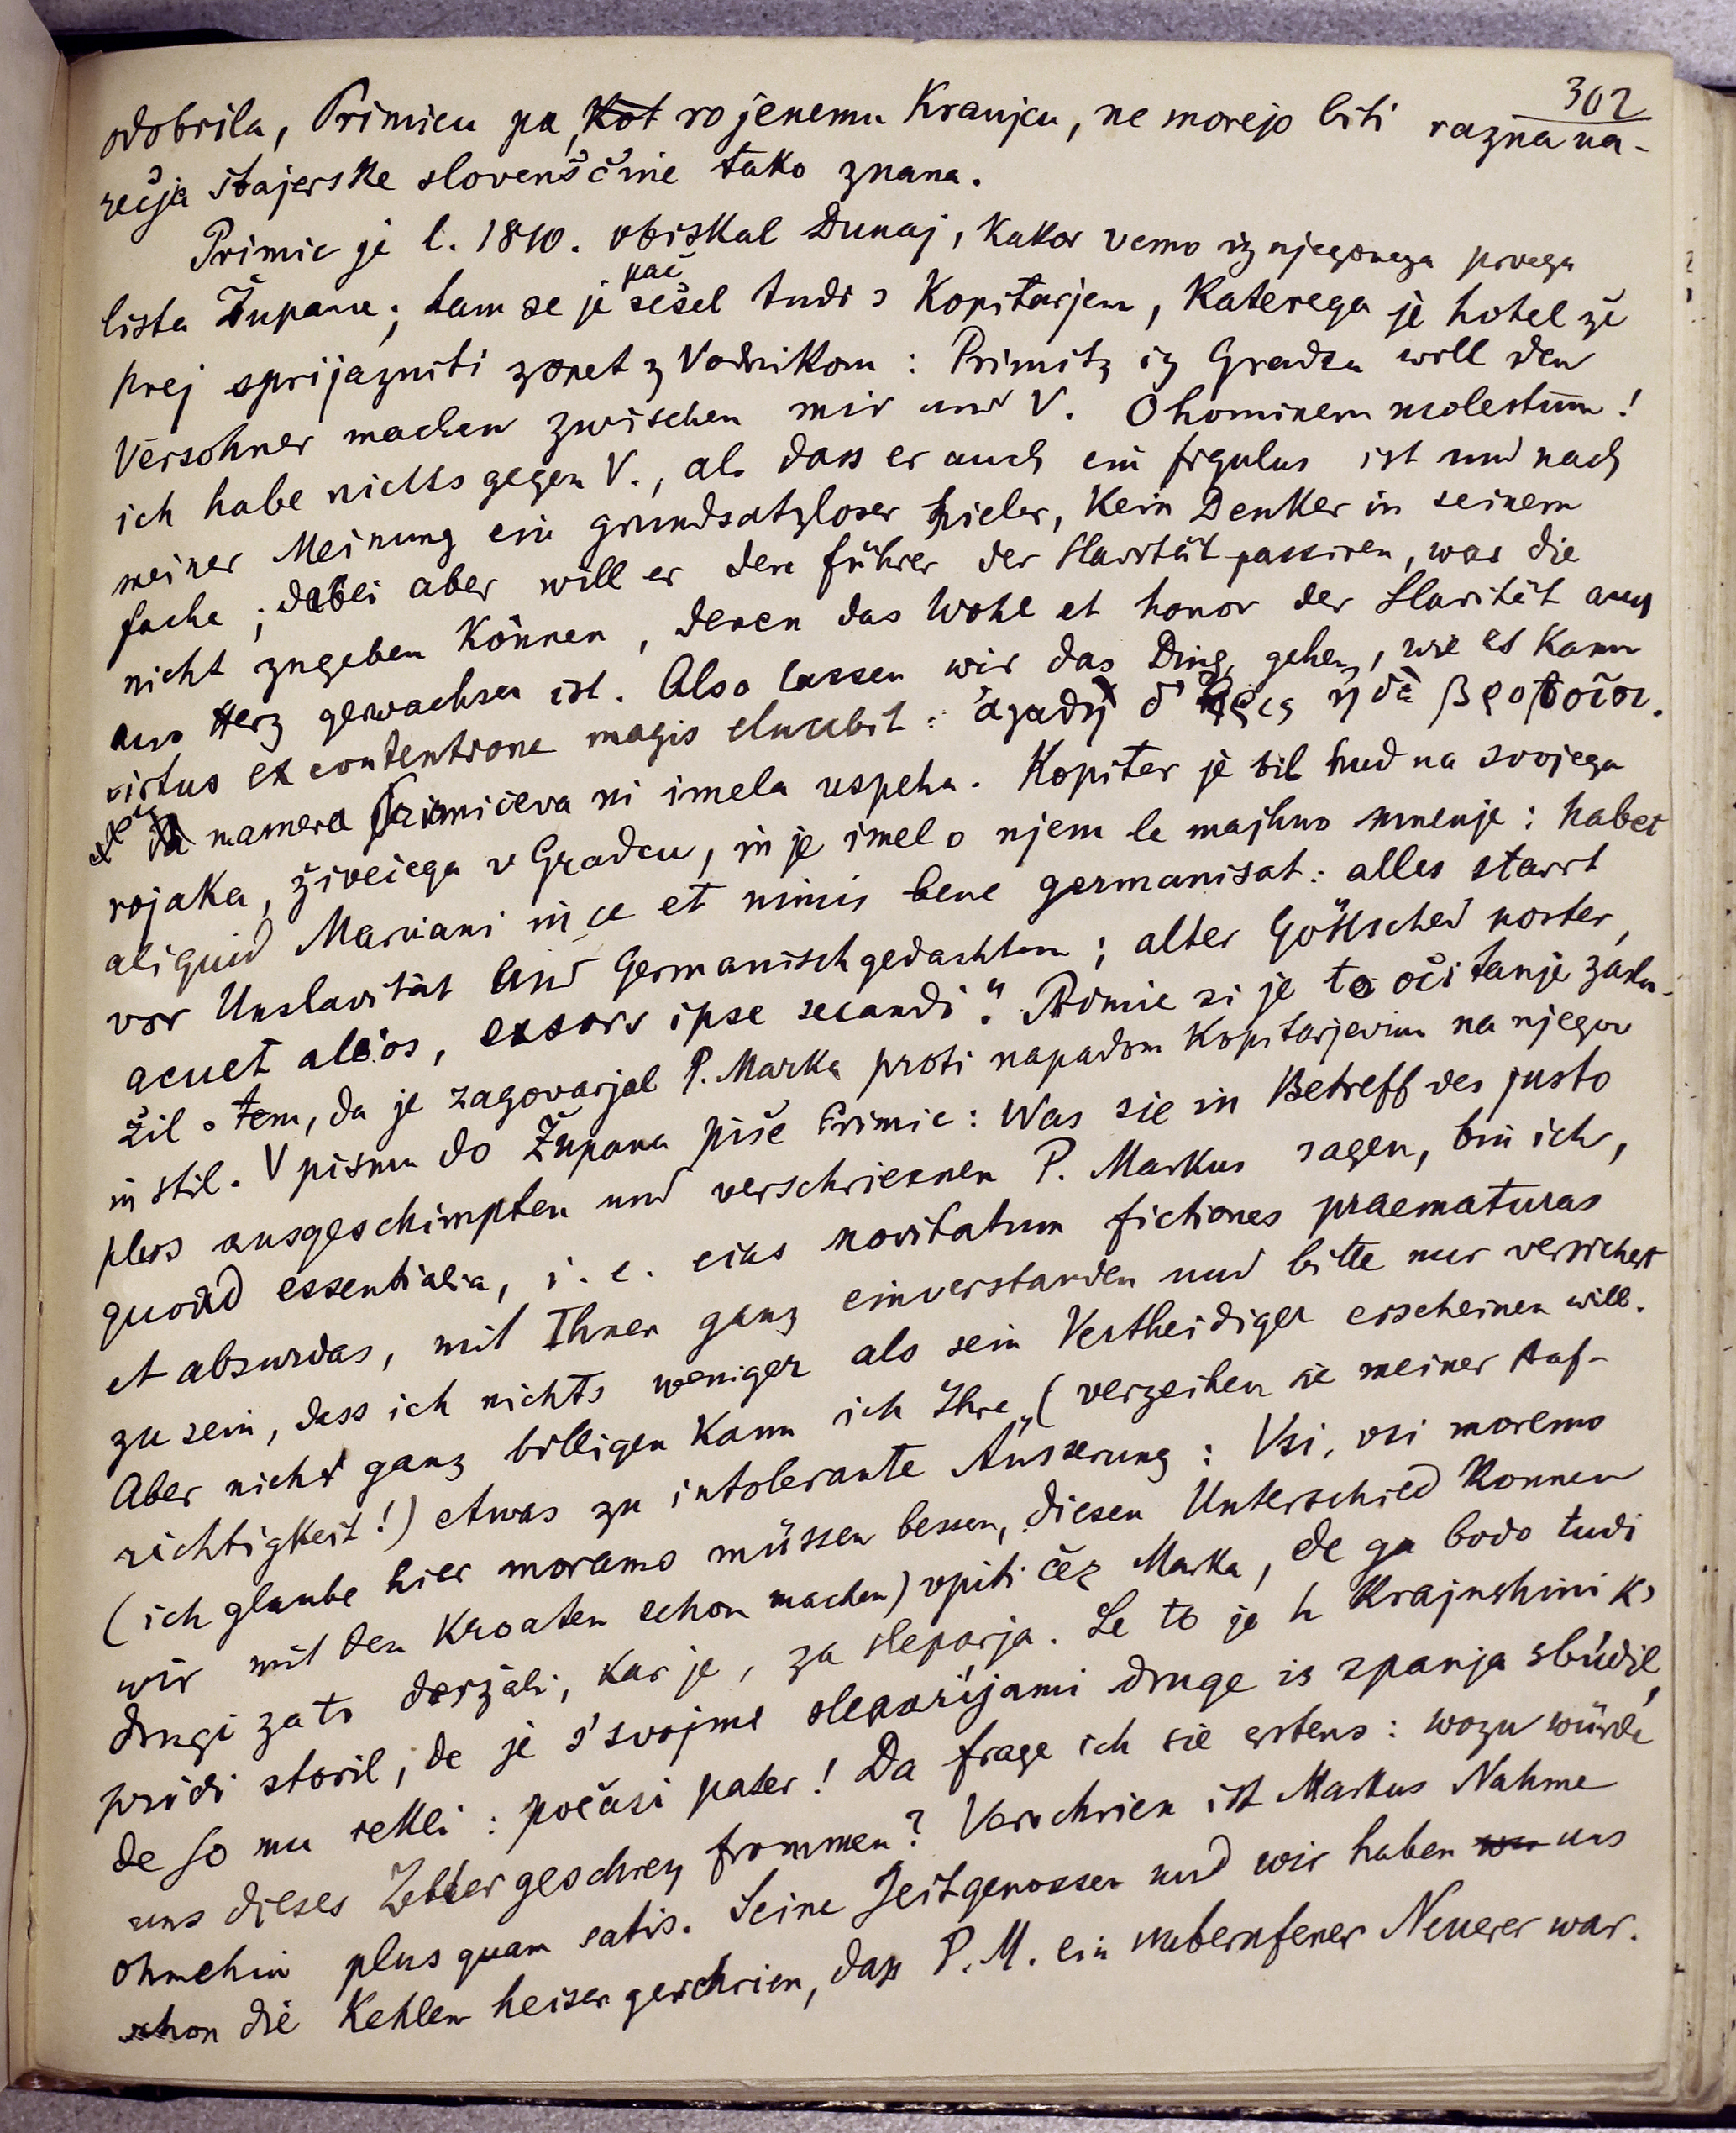 302
odobrila, Primicu pa, Kot rojenemu Kranjcu, ne morejo biti razna na-
rečja štajerske slovenščine tako znana.
Primic je l. 1810. obiskal Dunaj, kakor vemo iz njegovega prvega
lista Župana; tam se je pač sešel tudi s Kopitarjem, katerega je hotel že
prej sprijazniti zopet z Vodnikom: Primitz iz Gradza will den
Versöhner machen zwischen mir und V. O hominem molestum!
ich habe nichts gegen V., als dass er auch ein figulus ist und nach
meiner Meinung ein grundsatzloser Spieler, kein Denker in seinem
Fache; dabei aber will er den Führer der Slavität passiren, was die
nicht zugeben können, denen das Wohl et honor der Slavität auch
ans Herz gewachsen ist. Also lassen wir das Ding gehen, wie es kann
virtus ex contentione magis elucebit: ἀγαθὴ δ' ἔρις ἥδε βροτοῖσι.
namera Primičeva ni imela uspeha. Kopitar je bil hud na svojega
rojaka, živečega v Gradcu, in je imel o njem le majhno mnenje: habet
aliquid Marciani in se et nimis bene germanisat: alles starrt
vor Unslavität und Germanischgedachtem; alter Göttsched noster,
acuet alios, exsors ipse secandi." Primic si je to očitanje zaslu-
žil s tem, da je zagovarjal P. Marka proti napadom Kopitarjevim na njegov
in stil. V pismu do Župana piše Primic: Was sie in Betreff des justo
plus ausgeschimpften und verschrieenen P. Markus sagen, bin ich,
quoad essentialia, i. e. eius novitatum fictiones praematuras
et absurdas, mit Ihnen ganz einverstanden und bitte nur versichert
zu sein, dass ich nichts weniger als sein Vertheidiger erscheinen will.
Aber nicht ganz billigen kann ich Ihre (verzeihen sie meiner Auf-
richtigkeit!) etwas zu intolerante Äusserung: Vsi, vsi moremo
(ich glaube hier moramo müssen besser, diesen Unterschied können
wir mit den Kroaten schon machen) vpiti čez Marka, de ga bodo tudi
drugi zato deržali, kar je, za sleparja. Le to je h Krajnshini k'
pridi storil, de je s' svojme sleparijami druge is spanja sbudil,
de so mu rekli: počasi pater! Da frage ich sie erstens: wozu würde
uns dieses Zettergeschrey frommen? Verschrien ist Markus Nahme
ohnehin plus quam satis. Seine Zeitgenossen und wir haben uns
schon die Kehlen heiser geschrien, dass P. M. ein unberufener Neuerer war.